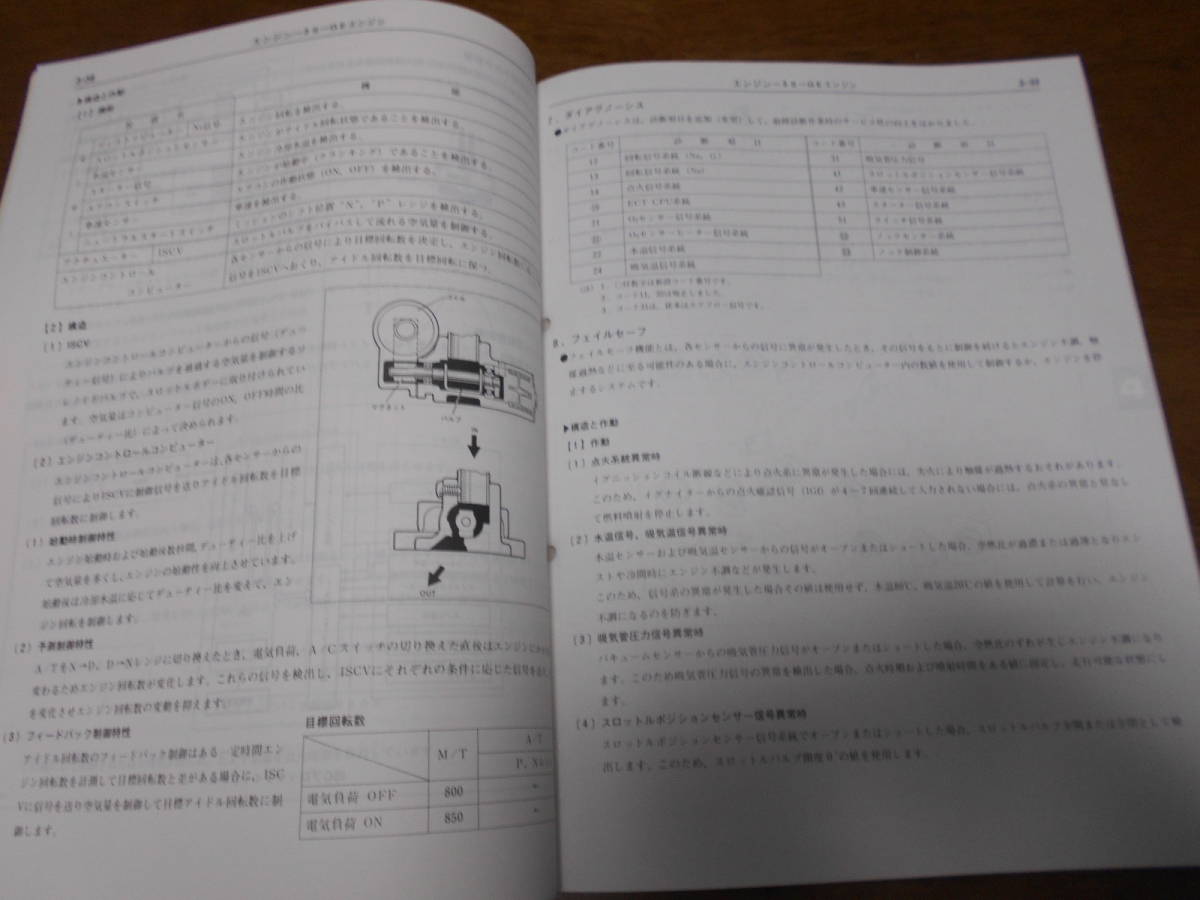 ▶構造と作動
〔1〕機能
機 能
エンジン回転を検出する。
エンジンがアイドル回転状態であることを検出する。
エンジン冷却水温を検出する。
スターター信号
エンジンが始動中（クランキング）であることを検出する。
エアコンスイッチ
エアコンの作動状態（ON、OFF）を検出する。
車速センサー
車速を検出する。
ニュートラルスタートスイッチ
ミッションのシフト位置“N”、“P”レンジを検出する。
アクチュエーター ISCV
スロットルバルブをバイパスして流れる空気量を制御する。
エンジンコントロール
コンピューター
各センサーからの信号により目標回転数を決定し、エンジン回転数
信号をISCVへおくり、アイドル回転数を目標回転に保つ。
【2】構造
〔1〕ISCV
エンジンコントロールコンピューターからの信号（デュー
ティー信号）によりバルブを通過する空気量を制御するソ
レノイドバルブで、スロットルボデーに取り付けられてい
ます。空気量はコンピューター信号のON、OFF時間の比
（デューティー比）によって決められます。
〔2〕エンジンコントロールコンピューター
エンジンコントロールコンピューターは、各センサーからの
信号によりISCVに制御信号を送りアイドル回転数を目標
回転数に制御します。
(1) 始動時制御特性
エンジン始動時および始動後数秒間、デューティー比を上げ
て空気量を多くし、エンジンの始動性を向上させています。
始動後は冷却水温に応じてデューティー比を変えて、エン
ジン回転を制御します。
コイル
マグネット
バルブ
IN
OUT
(2) 予測制御特性
A/TをN→D、D→Nレンジに切り換えたとき、電気負荷、A/Cスイッチの切り換えた直後はエンジンに
変わるためエンジン回転数が変化します。これらの信号を検出し、ISCVにそれぞれの条件に応じた信号を
を変化させエンジン回転数の変動を抑えます。
(3) フィードバック制御特性
アイドル回転数のフィードバック制御はある一定時間エン
ジン回転数を計測して目標回転数と差がある場合に、ISC
Vに信号を送り空気量を制御して目標アイドル回転数に制
御します。
目標回転数
M/T
A/T
電気負荷 OFF 800
電気負荷 ON 850
7. ダイアグノーシス
●ダイアグノーシスは、診断項目を追加（変更）して、故障診断作業時のサービス性の向上をはかりました。
コード番号 診 断 項 目 コード番号 診 断 項 目
12
13 回転信号系統（Ne）
14 点火信号系統
ECT CPU系統
21 O₂センサー信号系統
O₂センサーヒーター信号系統
22 水温信号系統
24 吸気温信号系統
31 吸気管圧力信号
41 スロットルポジションセンサー信号系統
42 車速センサー信号系統
43 スターター信号系統
51 スイッチ信号系統
ノックセンサー系統
ノック制御系統
8. フェイルセーフ
●フェイルセーフ機能とは、各センサーからの信号に異常が発生したとき、その信号をもとに制御を続けるとエンジン不調、触
媒過熱などに至る可能性のある場合に、エンジンコントロールコンピューター内の数値を使用して制御するか、エンジンを停
止するシステムです。
▶構造と作動
【1】作動
〔1〕点火系統異常時
イグニッションコイル断線などにより点火系に異常が発生した場合には、失火により触媒が過熱するおそれがあります。
このため、イグナイターからの点火確認信号（IGf）が4～7回連続して入力されない場合には、点火系の異常と見なし
て燃料噴射を停止します。
〔2〕水温信号、吸気温信号異常時
水温センサーおよび吸気温センサーからの信号がオープンまたはショートした場合、空燃比が過濃または過薄となりエン
ストや冷間時にエンジン不調などが発生します。
このため、信号系の異常が発生した場合その値は使用せず、水温80℃、吸気温20℃の値を使用して計算を行い、エンジン
不調になるのを防ぎます。
〔3〕吸気管圧力信号異常時
バキュームセンサーからの吸気管圧力信号がオープンまたはショートした場合、空燃比のずれが生じエンジン不調になり
ます。このため吸気管圧力信号の異常を検出した場合、点火時期および噴射時間をある値に固定し、走行可能な状態にし
ます。
〔4〕スロットルポジションセンサー信号異常時
スロットルポジションセンサー信号系統でオープンまたはショートした場合、スロットルバルブ全開または全閉として検
出します。このため、スロットルバルブ開度0°の値を使用します。